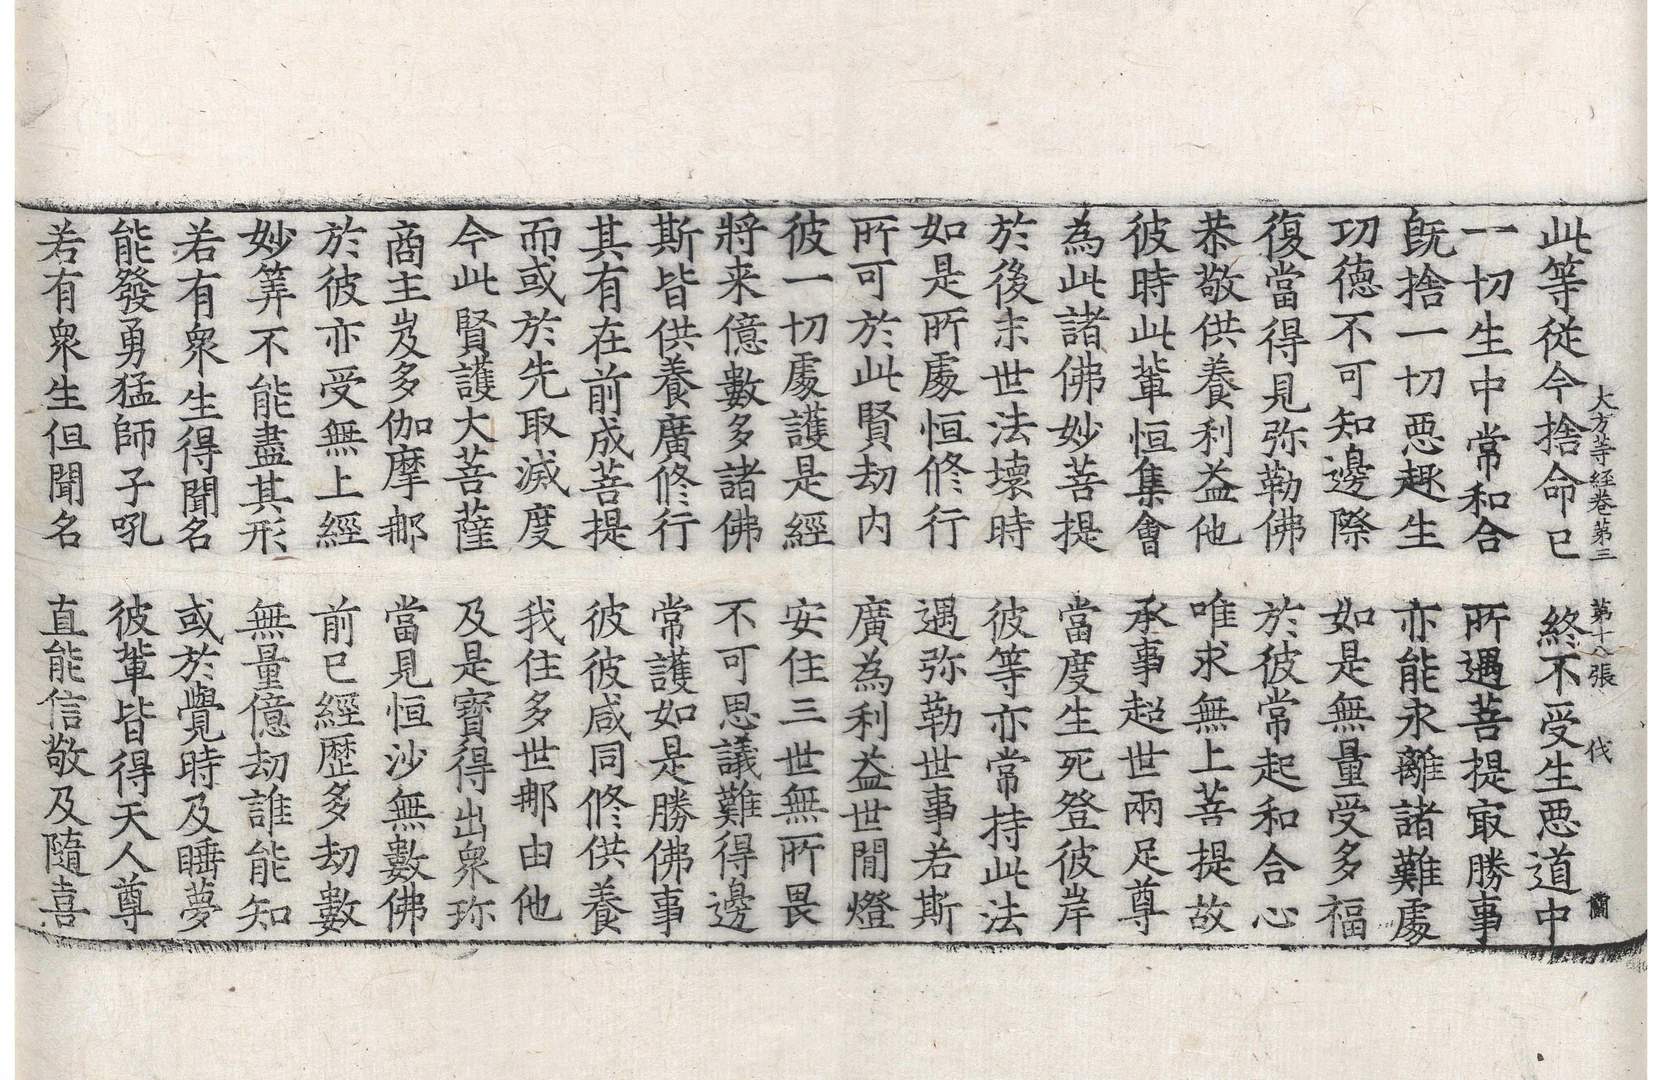 大方等経卷第三 第十八張 伐 蘭
此等從今捨命已 終不受生惡道中
一切生中常和合 所遇菩提㝡勝事
旣捨一切惡趣生 亦能永離諸難處
功德不可知邊際 如是無量受多福
復當得見弥勒佛 於彼常起和合心
恭敬供養利益他 唯求無上菩提故
彼時此軰恒集會 承事超世兩足尊
為此諸佛妙菩提 當度生死登彼岸
於後末世法壞時 彼等亦常持此法
如是所處恒修行 遇弥勒世事若斯
所可於此賢劫内 廣為利益世間燈
彼一切處護是經 安住三世無所畏
將来億數多諸佛 不可思議難得邊
斯皆供養廣修行 常護如是勝佛事
其有在前成菩提 彼彼咸同修供養
而或於先取滅度 我住多世那由他
今此賢護大菩薩 及是寶得出衆珎
商主及多伽摩那 當見恒沙無數佛
於彼亦受無上經 前已經歷多劫數
妙筭不能盡其形 無量億劫誰能知
若有衆生得聞名 或於覺時及睡夢
能發勇猛師子吼 彼軰皆得天人尊
若有衆生但聞名 直能信敬及隨喜